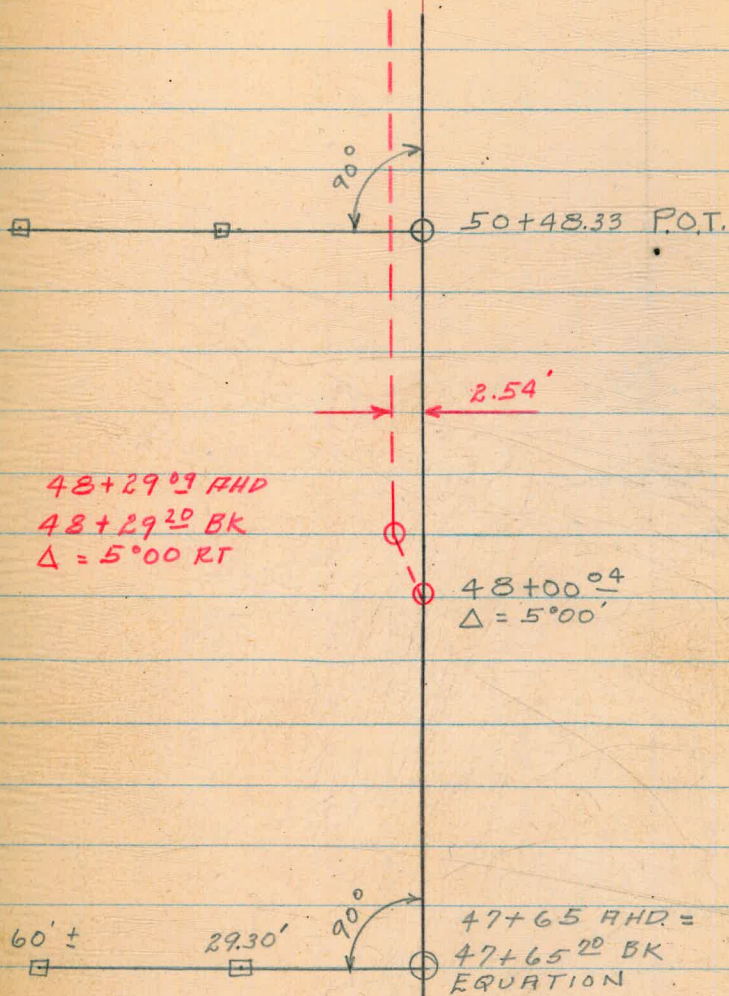 90°
50+48.33 P.O.T.
2.54'
48+29 09 AHD
48+29 20 BK
Δ = 5°00 RT
48+00 04
Δ = 5°00'
90°
60' ±
29.30'
47+65 AHD. =
47+65 20 BK
EQUATION